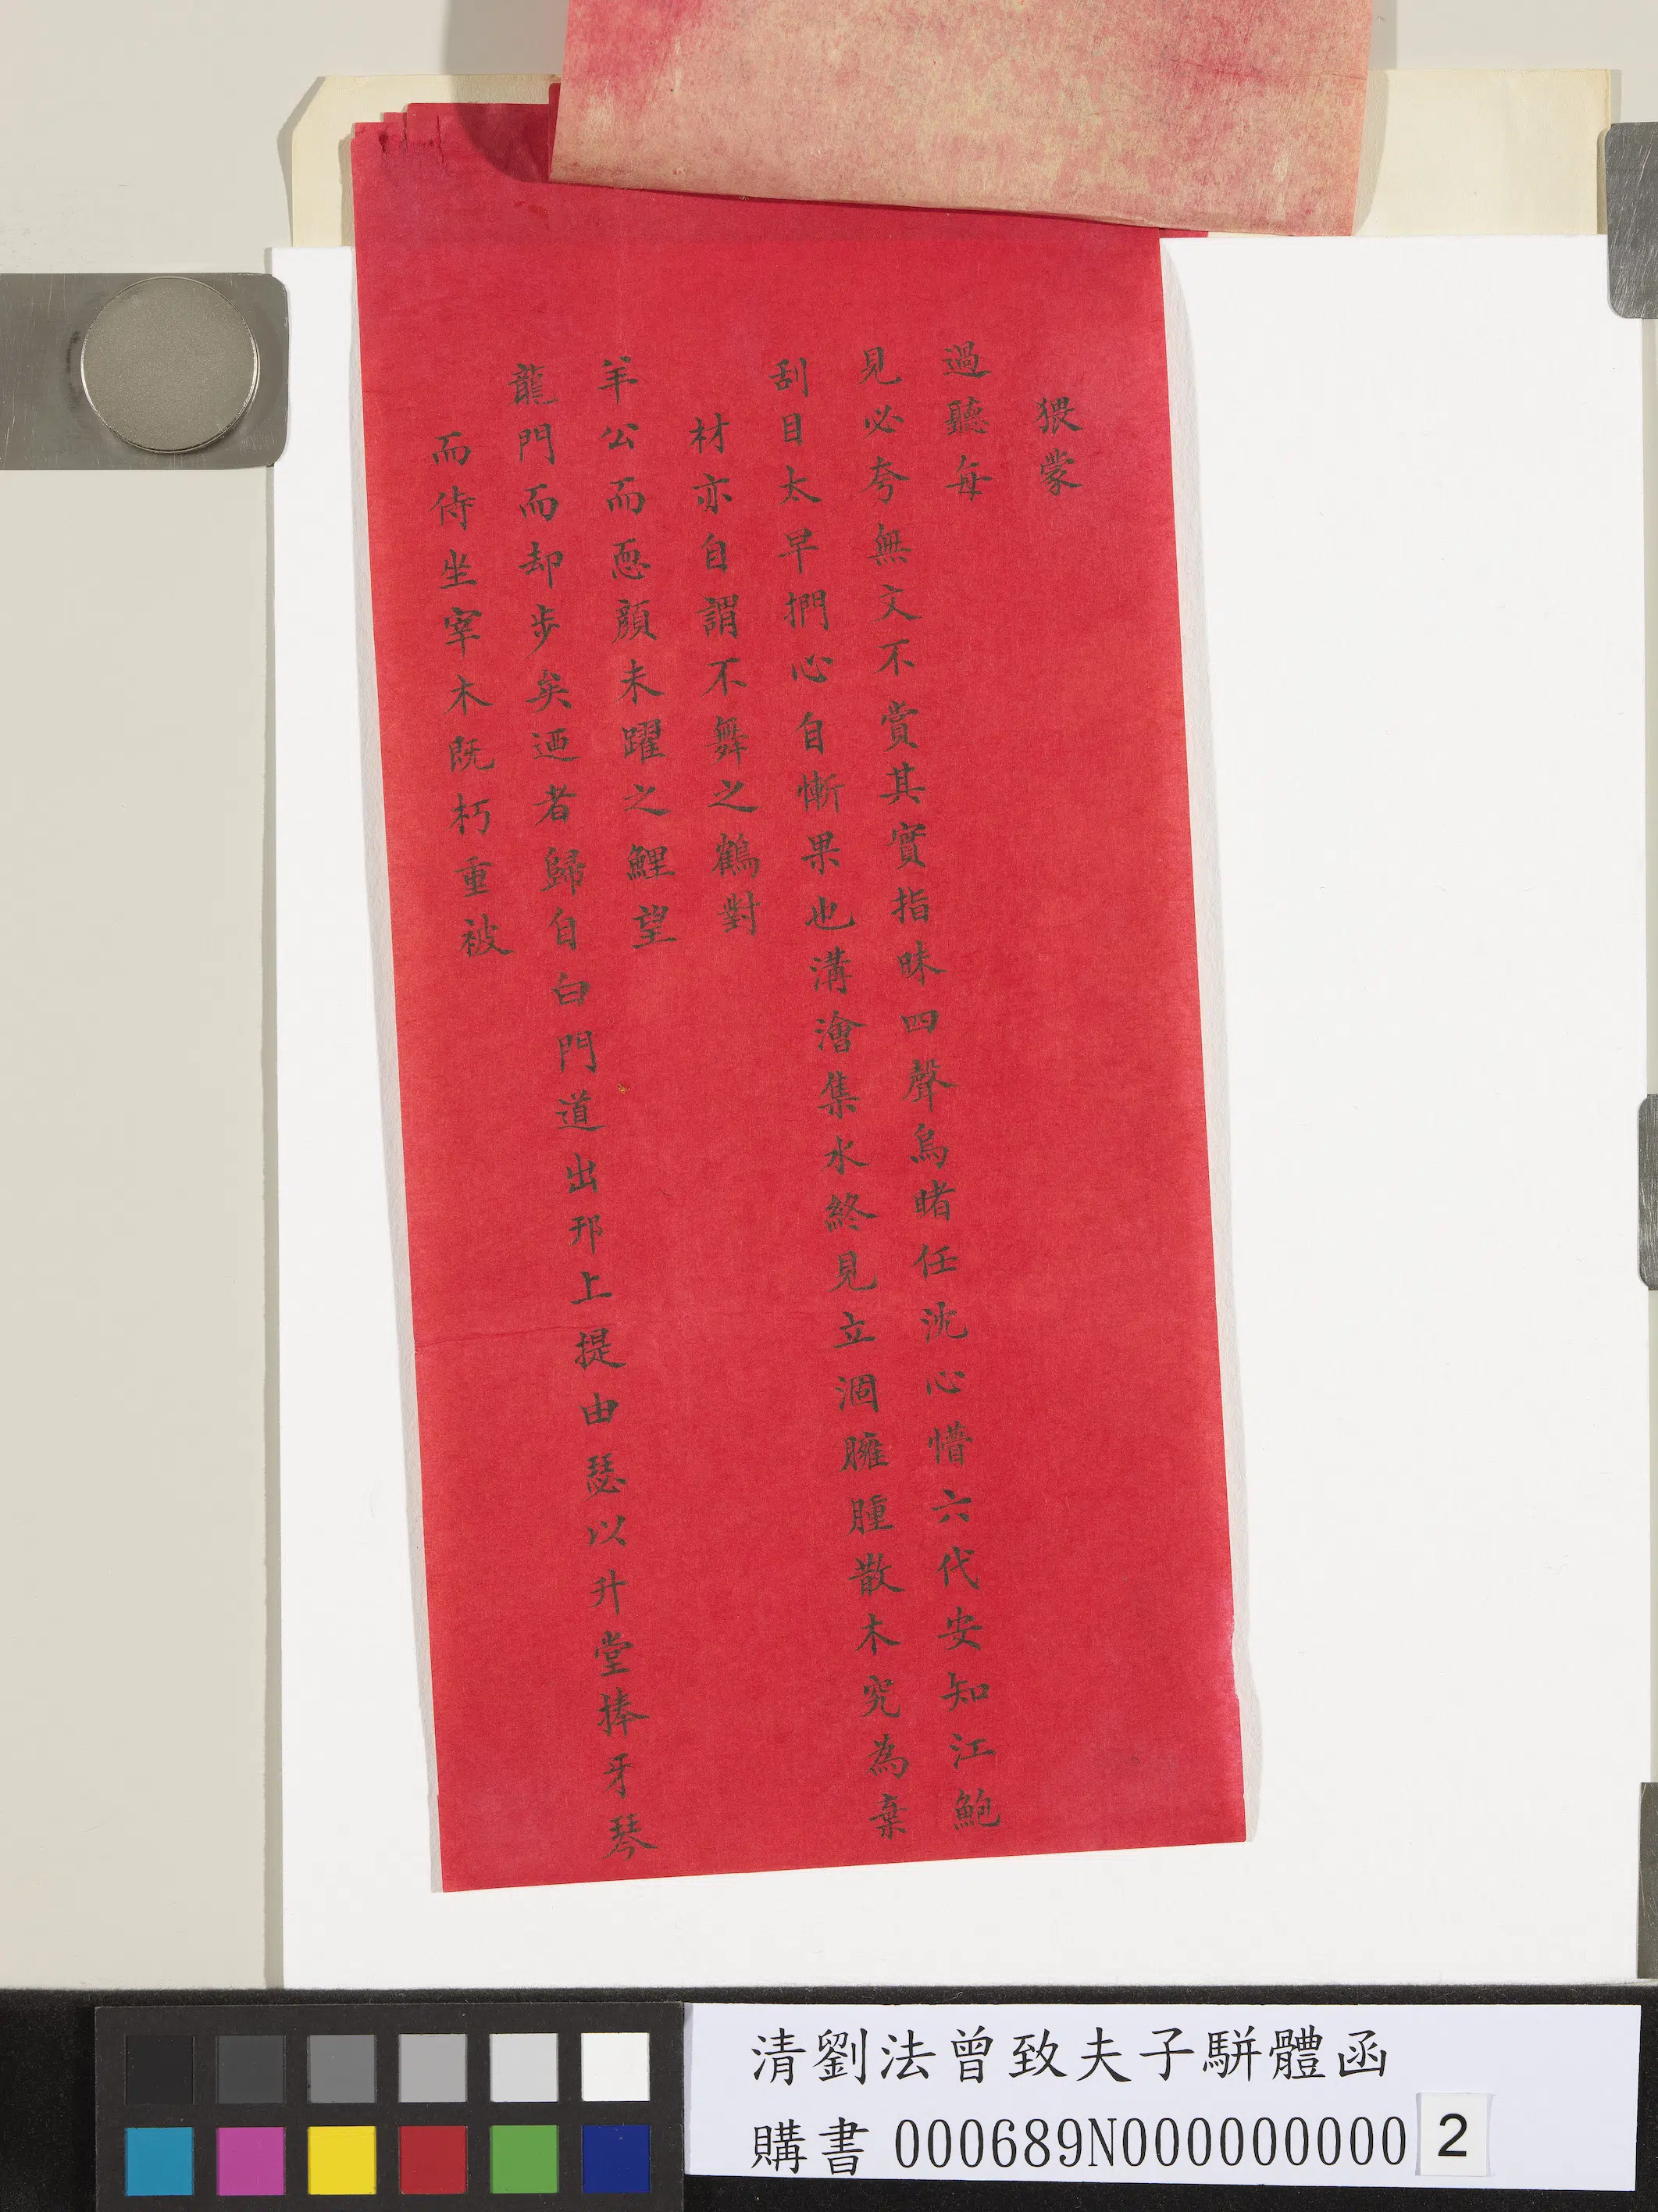 猥蒙
過聽每
見必夸無文不賞其實指昧四聲烏睹任沈心懵六代安知江鮑
刮目太早捫心自慚果也溝澮集水終見立涸臃腫散木究為棄
材亦自謂不舞之鶴對
羊公而恧顏未躍之鯉望
龍門而却步矣迺者歸自白門道出邗上提由瑟以升堂捧牙琴
而侍坐宰木既朽重被
清劉法曾致夫子駢體函
購書 000689N000000000 2